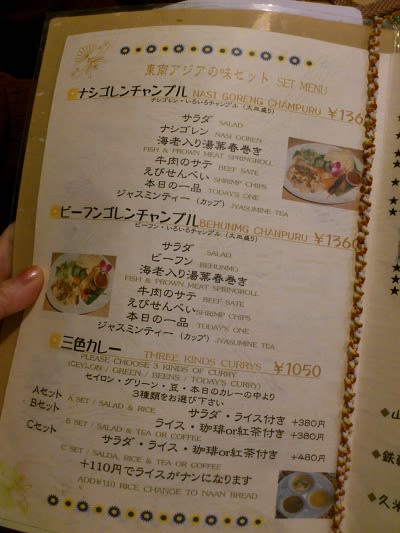 東南アジアの味セット SET MENU
ナシゴレンチャンプル NASI GORENG CHAMPURU ¥1360
ナシゴレン・いろいろチャンプル (大皿盛り)
サラダ SALAD
ナシゴレン NASI GOREN
海老入り湯葉春巻き
FISH & PROWN MEAT SPRINGROLL
牛肉のサテ BEEF SATE
えびせんべい SHRIMP CHIPS
本日の一品 TODAY'S ONE
ジャスミンティー (カップ) JYASUMINE TEA
ビーフンゴレンチャンプル BEHUNMG CHANPURU ¥1360
ビーフン・いろいろチャンプル (大皿盛り)
サラダ SALAD
ビーフン BEHUNMO
海老入り湯葉春巻き
FISH & PROWN MEAT SPRINGROLL
牛肉のサテ BEEF SATE
えびせんべい SHRIMP CHIPS
本日の一品 TODAY'S ONE
ジャスミンティー (カップ) JYASUMINE TEA
三色カレー THREE KINDS CURRYS ¥1050
PLEASE CHOOSE 3 KINDS OF CURRY
(CEYLON / GREEN / BEENS / TODAY'S CURRY)
セイロン・グリーン・豆・本日のカレーの中より
3種類をお選び下さい
Aセット サラダ・ライス付き +380円
A SET / SALAD & RICE
Bセット ライス・珈琲or紅茶付き +380円
B SET / SALAD & TEA OR COFFEE
Cセット サラダ・ライス・珈琲or紅茶付き +480円
C SET / SALDA, RICE & TEA OR COFFEE
+110円でライスがナンになります
ADD¥110 RICE CHANGE TO NAAN BREAD